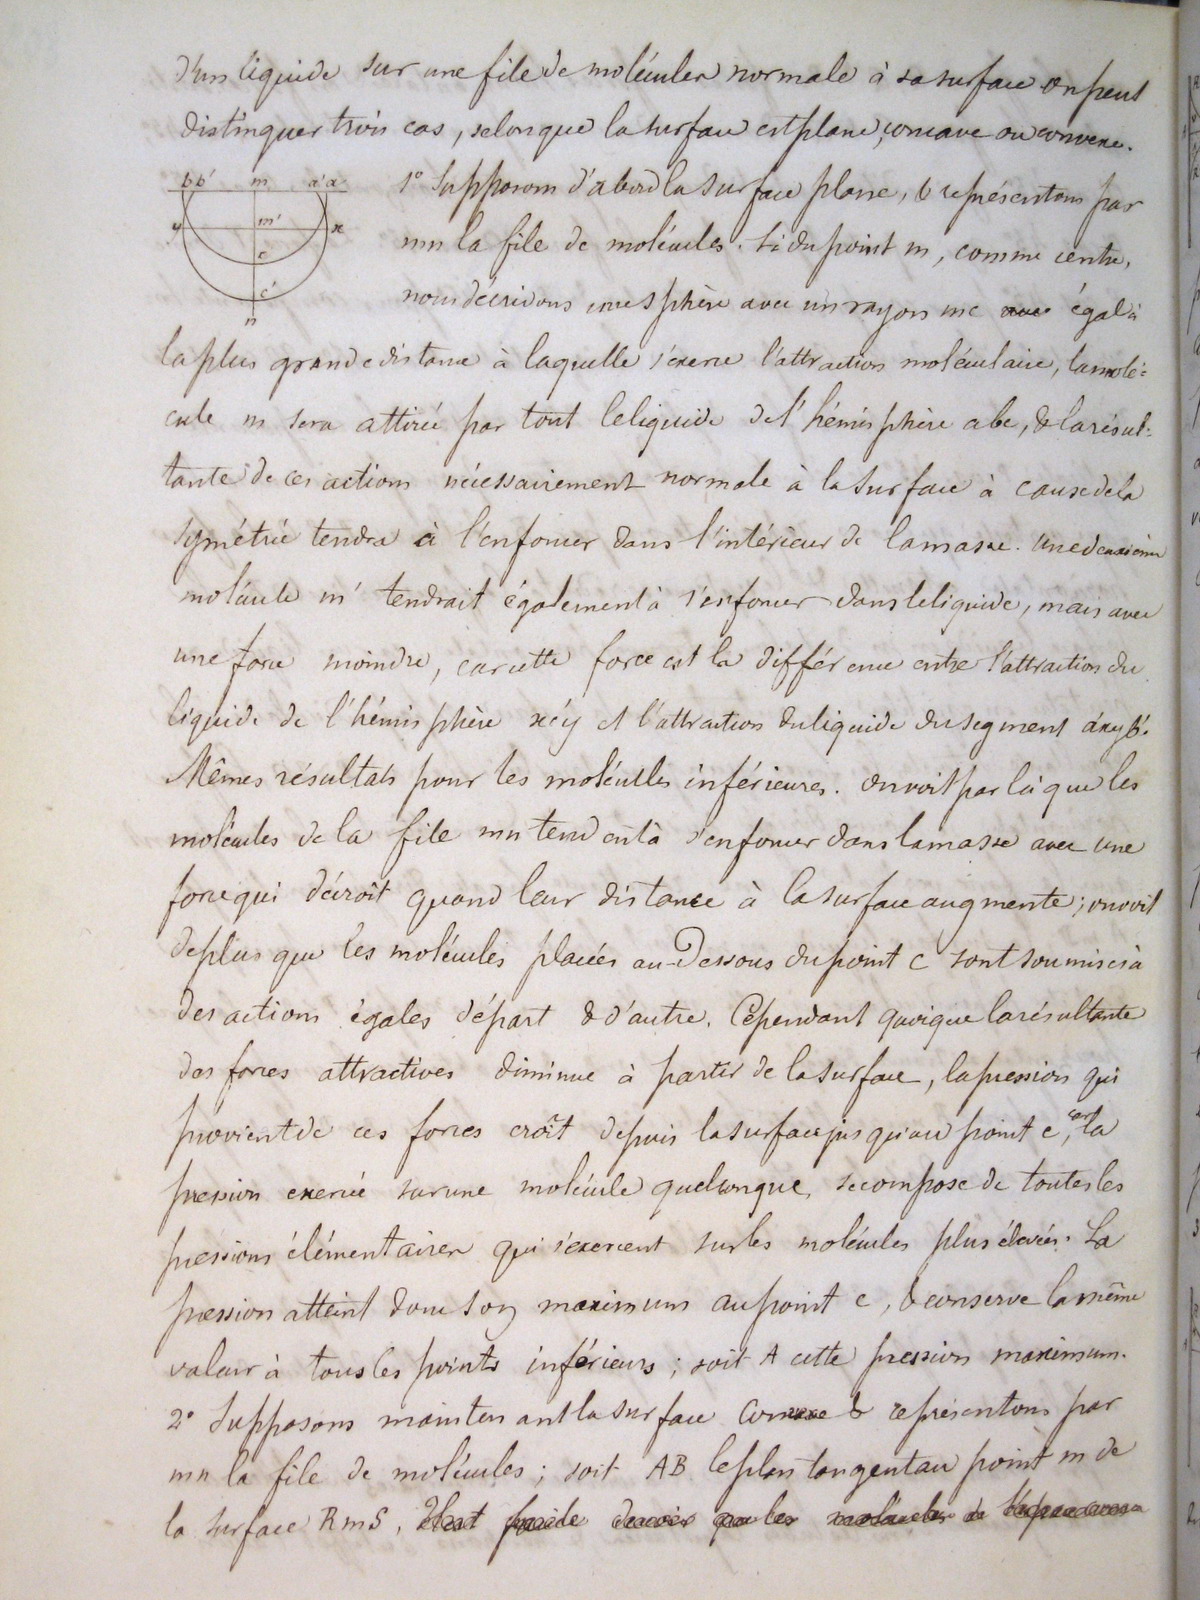 d'un liquide sur une file de molécules normale à sa surface on peut
distinguer trois cas, selon que la surface est plane, concave ou convexe.
b b' m a' a
1° Supposons d'abord la surface plane, & représentons par
y m' x
mn la file de molécules. Si du point m, comme centre,
c
nous décrivons une sphère avec un rayon mc égal à
c'
n
la plus grande distance à laquelle s'exerce l'attraction moléculaire, la molé=
cule m sera attirée par tout le liquide de l'hémisphère abc, & la résul=
tante de ces actions nécessairement normale à la surface à cause de la
symétrie tendra à l'enfoncer dans l'intérieur de la masse. Une deuxième
molécule m' tendrait également à s'enfoncer dans le liquide, mais avec
une force moindre, car cette force est la différence entre l'attraction du
liquide de l'hémisphère xc'y et l'attraction du liquide du segment a'xyb'.
Mêmes résultats pour les molécules inférieures. On voit par là que les
molécules de la file mn tendent à s'enfoncer dans la masse avec une
force qui décroît quand leur distance à la surface augmente; on voit
de plus que les molécules placées au-dessous du point c sont soumises à
des actions égales de part & d'autre. Cependant quoique la résultante
des forces attractives diminue à partir de la surface, la pression qui
provient de ces forces croît depuis la surface jusqu'au point c, car la
pression exercée sur une molécule quelconque, se compose de toutes les
pressions élémentaires qui s'exercent sur les molécules plus élevées. La
pression atteint donc son maximum au point c, & conserve la même
valeur à tous les points inférieurs; soit A cette pression maximum.
2° Supposons maintenant la surface & représentons par
mn la file de molécules; soit AB le plan tangent au point m de
la surface RmS.